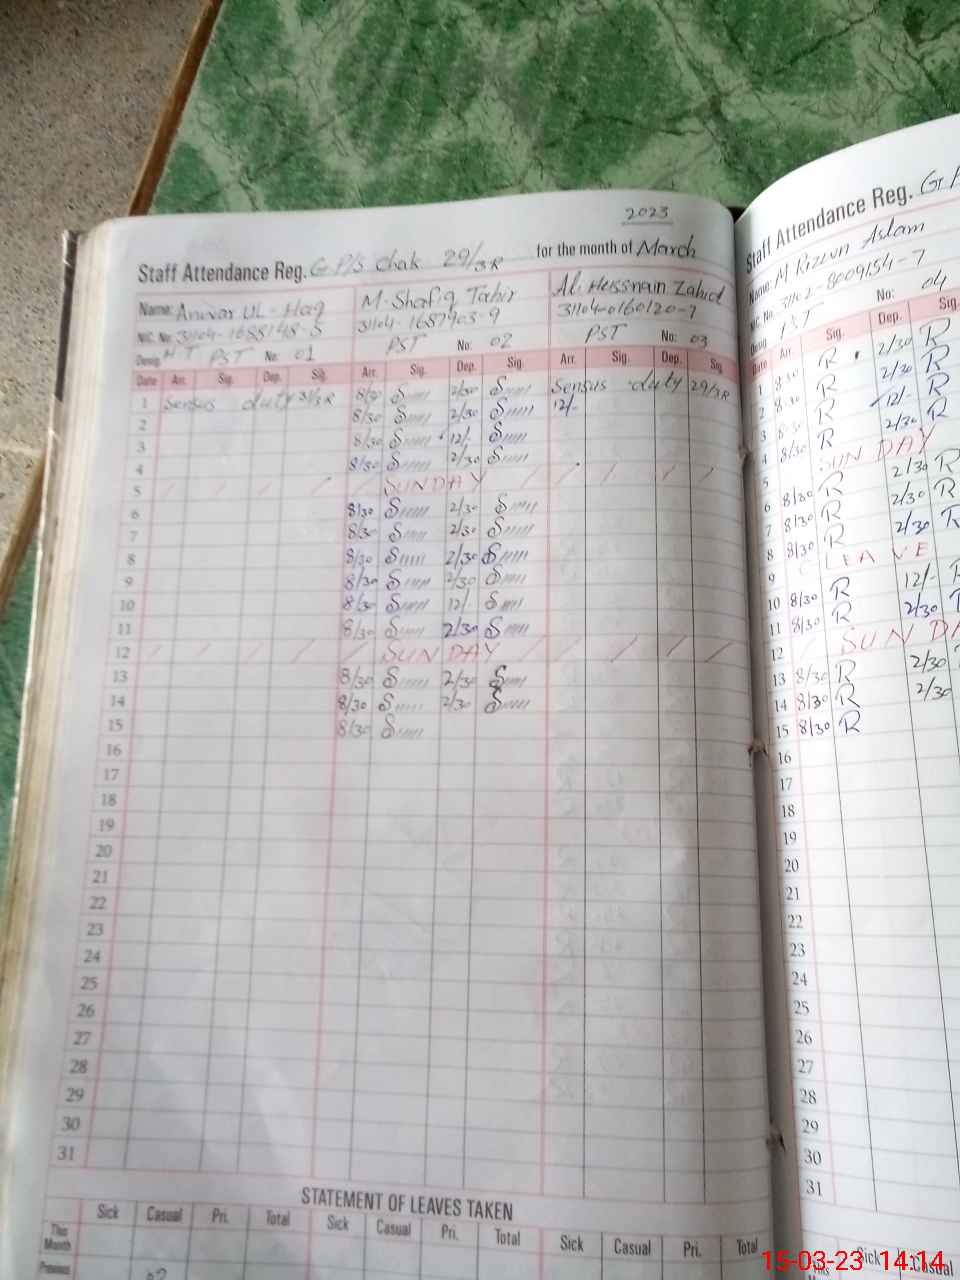 2023
Staff Attendance Reg. G P/S Chak 29/3R for the month of March
Name: Anwar UL-Haq M. Shafiq Tahir Al. Hussnain Zahid
N.I.C. No. 31104-1688148-5 31104-1687903-9 31104-0160120-7
Desig. H T PST No: 01 PST No: 02 PST No: 03
Date Arr. Sig. Dep. Sig. Arr. Sig. Dep. Sig. Arr. Sig. Dep. Sig
1 Sensus duty 31/3R 8/30 2/30 Sensus duty 29/3R
2 8/30 2/30 12/-
3 8/30 12/-
4 8/30 2/30
5 SUNDAY
6 8/30 2/30
7 8/30 2/30
8 8/30 2/30
9 8/30 2/30
10 8/30 12/-
11 8/30 2/30
12 SUNDAY
13 8/30 2/30
14 8/30 2/30
15 8/30
16
17
18
19
20
21
22
23
24
25
26
27
28
29
30
31
STATEMENT OF LEAVES TAKEN
Sick Casual Pri. Total Sick Casual Pri. Total Sick Casual Pri. Total
This Month
Previous
Staff Attendance Reg. G P
Name: M Rizwn Aslam
N.I.C. No. 31102-8009154-7
Desig. PST No: 04
Date Arr. Sig. Dep. Sig.
1 8:30 R 2/30 R
2 8:30 R 2/30 R
3 8:30 R 12/- R
4 8/30 R 2/30 R
5 SUN DAY
6 8/30 R 2/30 R
7 8/30 R 2/30 R
8 8/30 R 2/30 R
9 LEAVE
10 8/30 R 12/- R
11 8/30 R 2/30
12 SUN DA
13 8/30 R 2/30
14 8/30 R 2/30
15 8/30 R
16
17
18
19
20
21
22
23
24
25
26
27
28
29
30
31
Sick Casual
15-03-23 14:14